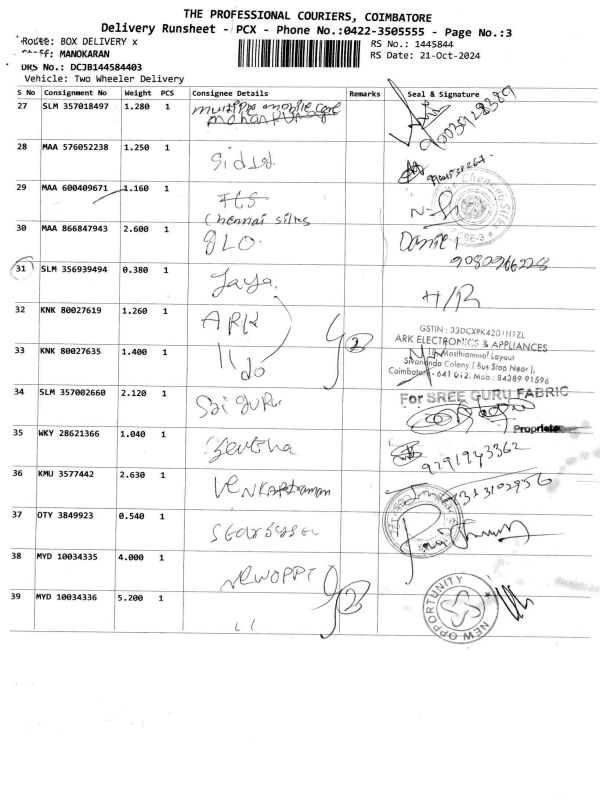 THE PROFESSIONAL COURIERS, COIMBATORE
Delivery Runsheet - PCX - Phone No.:0422-3505555 - Page No.:3
Route: BOX DELIVERY x
Staff: MANOKARAN
DRS No.: DCJB144584403
Vehicle: Two Wheeler Delivery
RS No.: 1445844
RS Date: 21-Oct-2024
S No Consignment No Weight PCS Consignee Details Remarks Seal & Signature
27 SLM 357018497 1.280 1 multiple mobile care
28 MAA 576052238 1.250 1
29 MAA 600409671 1.160 1
Chennai silks
30 MAA 866847943 2.600 1 GLO. Daniel
9080966228
31 SLM 356939494 0.380 1 Jaya. H/R
32 KNK 80027619 1.260 1 ARK 2
GSTIN : 33DCXPK4201H1ZL
ARK ELECTRONICS & APPLIANCES
Masthiammal Layout
Sivananda Colony ( Bus Stop Near ),
Coimbatore - 641 012. Mob : 84389 91596
33 KNK 80027635 1.400 1 11 do
34 SLM 357002660 2.120 1 Sri guru
For SREE GURU FABRIC
Proprietor
35 WKY 28621366 1.040 1 9291943362
36 KMU 3577442 2.630 1 Venkatraman
37 OTY 3849923 0.540 1
38 MYD 10034335 4.000 1 NEWOPPT 2
39 MYD 10034336 5.200 1 11
NEW OPPORTUNITY